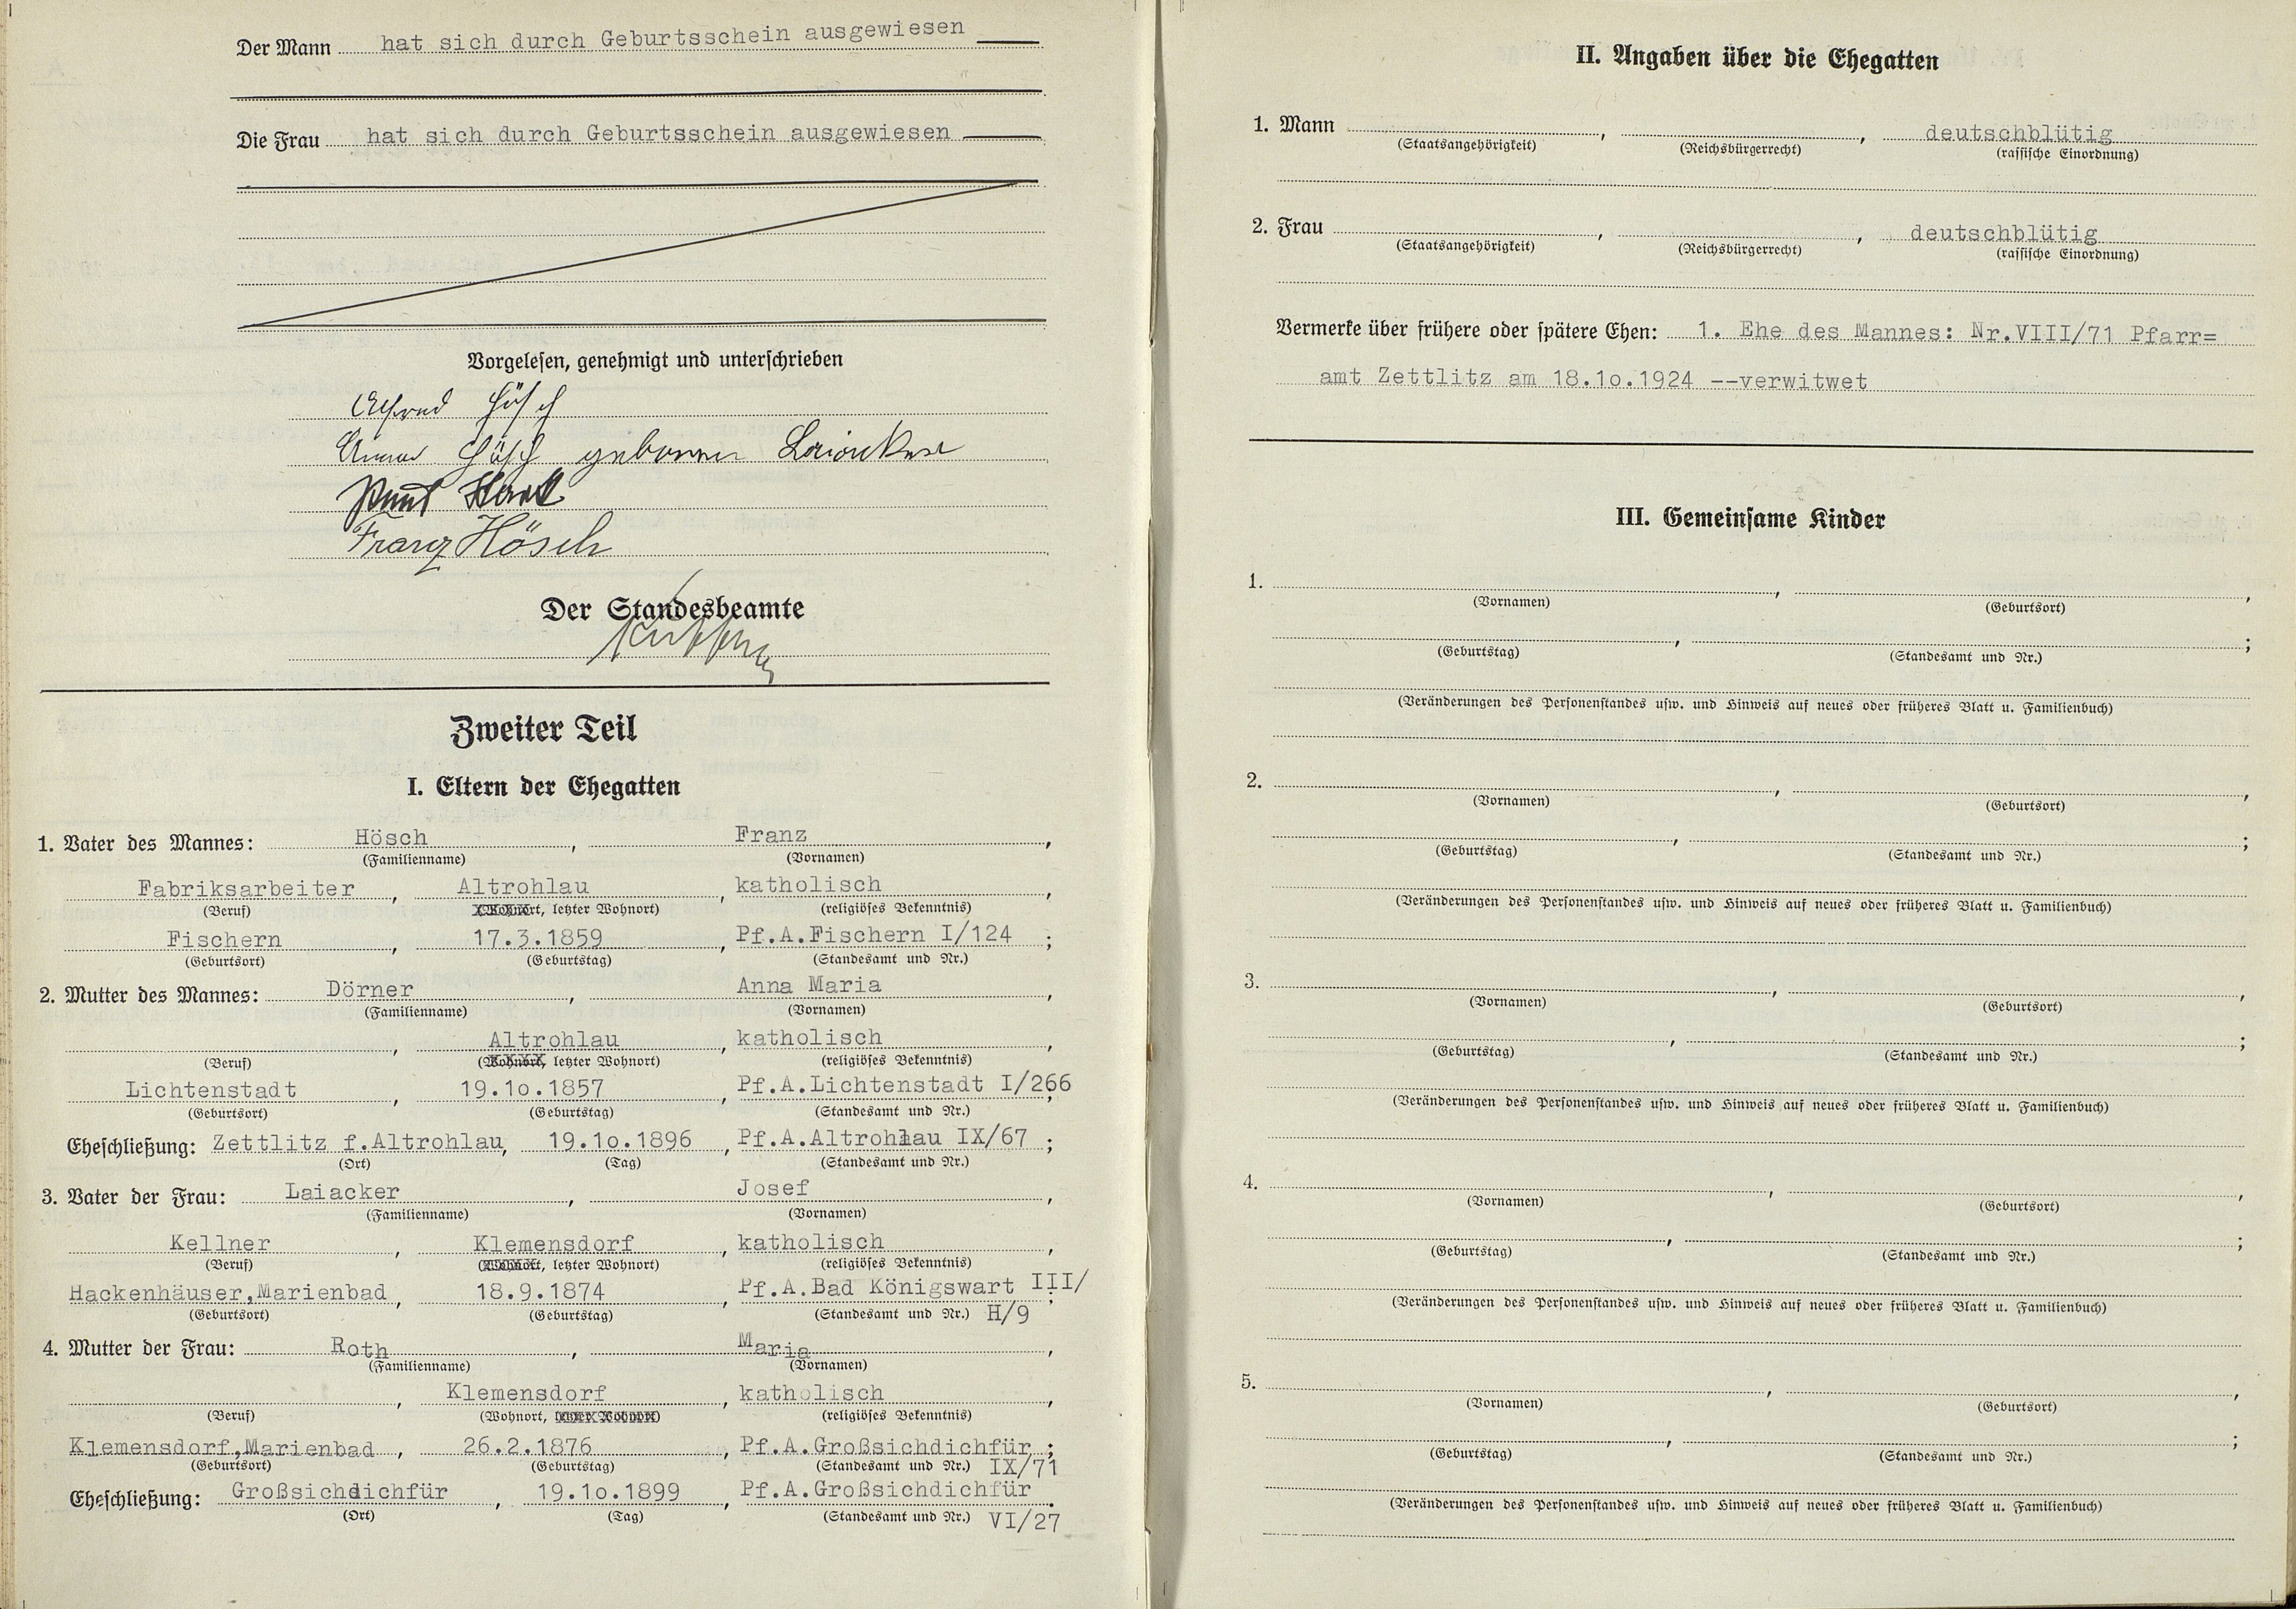 Der Mann hat sich durch Geburtsschein ausgewiesen
Die Frau hat sich durch Geburtsschein ausgewiesen
Vorgelesen, genehmigt und unterschrieben
Alfred Hösch
Anna Hösch geborene Laiacker
Franz Hösch
Der Standesbeamte
Zweiter Teil
I. Eltern der Ehegatten
1. Vater des Mannes: Hösch, Franz,
(Familienname) (Vornamen)
Fabriksarbeiter, Altrohlau, katholisch,
(Beruf) (Wohnort, letzter Wohnort) (religiöses Bekenntnis)
Fischern, 17.3.1859, Pf.A.Fischern I/124;
(Geburtsort) (Geburtstag) (Standesamt und Nr.)
2. Mutter des Mannes: Dörner, Anna Maria,
(Familienname) (Vornamen)
, Altrohlau, katholisch,
(Beruf) (Wohnort, letzter Wohnort) (religiöses Bekenntnis)
Lichtenstadt, 19.1o.1857, Pf.A.Lichtenstadt I/266;
(Geburtsort) (Geburtstag) (Standesamt und Nr.)
Eheschließung: Zettlitz f.Altrohlau, 19.1o.1896, Pf.A.Altrohlau IX/67;
(Ort) (Tag) (Standesamt und Nr.)
3. Vater der Frau: Laiacker, Josef,
(Familienname) (Vornamen)
Kellner, Klemensdorf, katholisch,
(Beruf) (Wohnort, letzter Wohnort) (religiöses Bekenntnis)
Hackenhäuser,Marienbad, 18.9.1874, Pf.A.Bad Königswart III/;
(Geburtsort) (Geburtstag) (Standesamt und Nr.) H/9
4. Mutter der Frau: Roth, Maria,
(Familienname) (Vornamen)
, Klemensdorf, katholisch,
(Beruf) (Wohnort, letzter Wohnort) (religiöses Bekenntnis)
Klemensdorf,Marienbad, 26.2.1876, Pf.A.Großsichdichfür;
(Geburtsort) (Geburtstag) (Standesamt und Nr.) IX/71
Eheschließung: Großsichdichfür, 19.1o.1899, Pf.A.Großsichdichfür.
(Ort) (Tag) (Standesamt und Nr.) VI/27
II. Angaben über die Ehegatten
1. Mann , , deutschblütig
(Staatsangehörigkeit) (Reichsbürgerrecht) (rassische Einordnung)
2. Frau , , deutschblütig
(Staatsangehörigkeit) (Reichsbürgerrecht) (rassische Einordnung)
Vermerke über frühere oder spätere Ehen: 1. Ehe des Mannes: Nr.VIII/71 Pfarr=
amt Zettlitz am 18.1o.1924 --verwitwet
III. Gemeinsame Kinder
1. , ,
(Vornamen) (Geburtsort)
, ;
(Geburtstag) (Standesamt und Nr.)
(Veränderungen des Personenstandes usw. und Hinweis auf neues oder früheres Blatt u. Familienbuch)
2. , ,
(Vornamen) (Geburtsort)
, ;
(Geburtstag) (Standesamt und Nr.)
(Veränderungen des Personenstandes usw. und Hinweis auf neues oder früheres Blatt u. Familienbuch)
3. , ,
(Vornamen) (Geburtsort)
, ;
(Geburtstag) (Standesamt und Nr.)
(Veränderungen des Personenstandes usw. und Hinweis auf neues oder früheres Blatt u. Familienbuch)
4. , ,
(Vornamen) (Geburtsort)
, ;
(Geburtstag) (Standesamt und Nr.)
(Veränderungen des Personenstandes usw. und Hinweis auf neues oder früheres Blatt u. Familienbuch)
5. , ,
(Vornamen) (Geburtsort)
, ;
(Geburtstag) (Standesamt und Nr.)
(Veränderungen des Personenstandes usw. und Hinweis auf neues oder früheres Blatt u. Familienbuch)